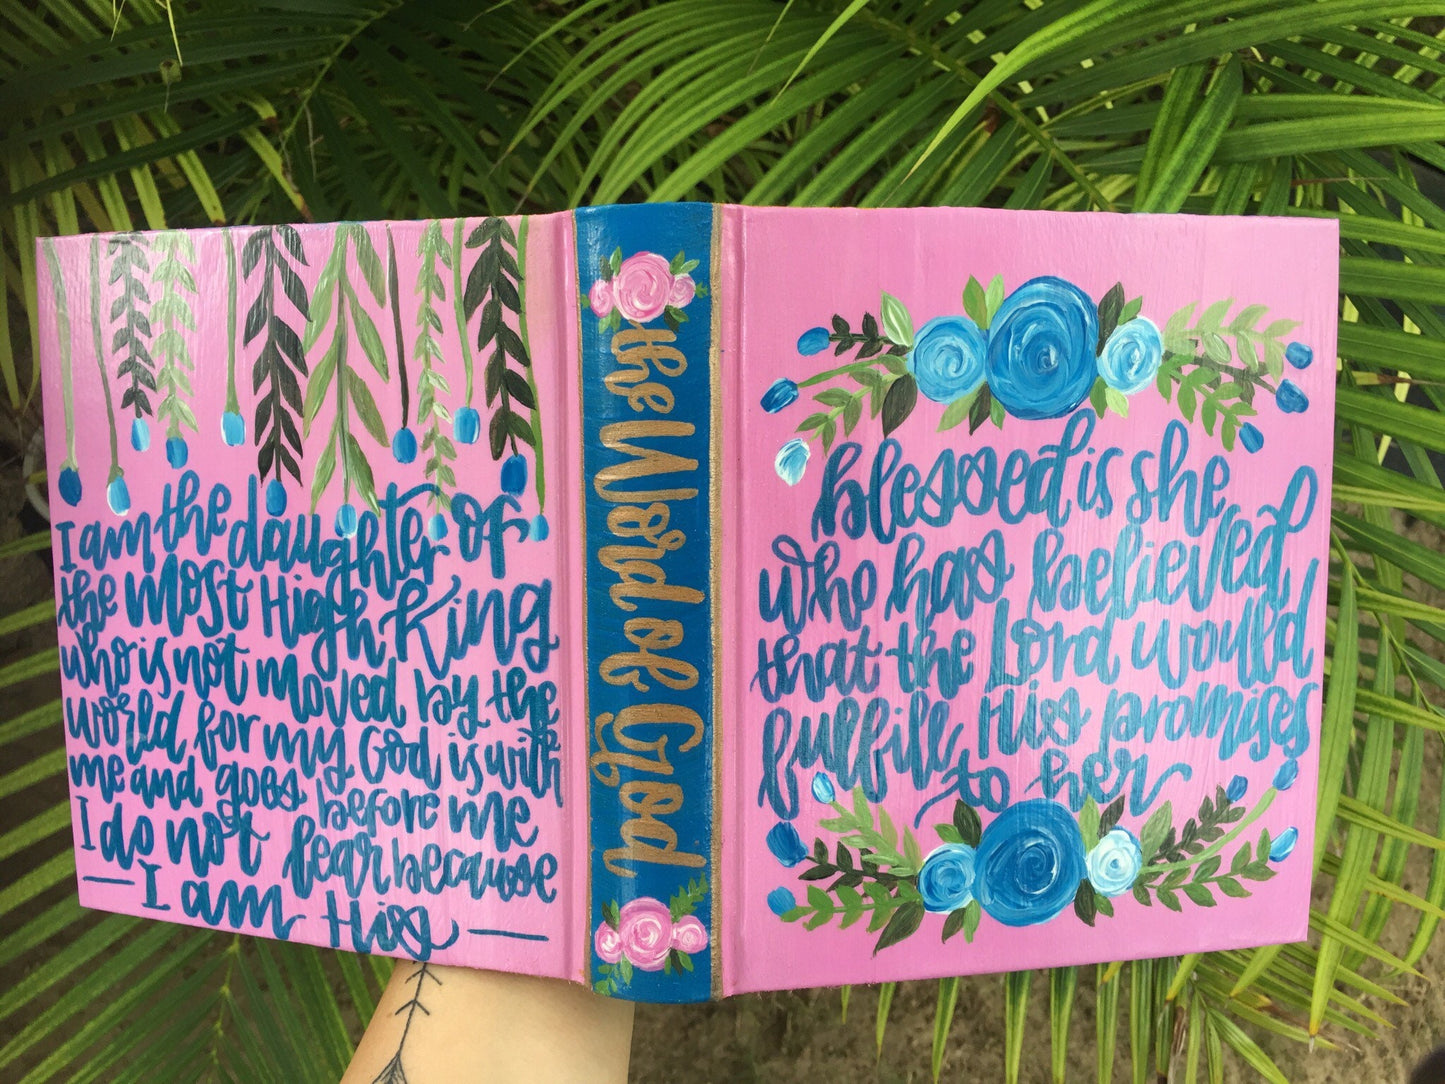 I am the daughter of
the most High King
who is not moved by the
world for my God is with
me and goes before me
I do not fear because
— I am His —
the Word of God
blessed is she
who has believed
that the Lord would
fulfill His promises
to her